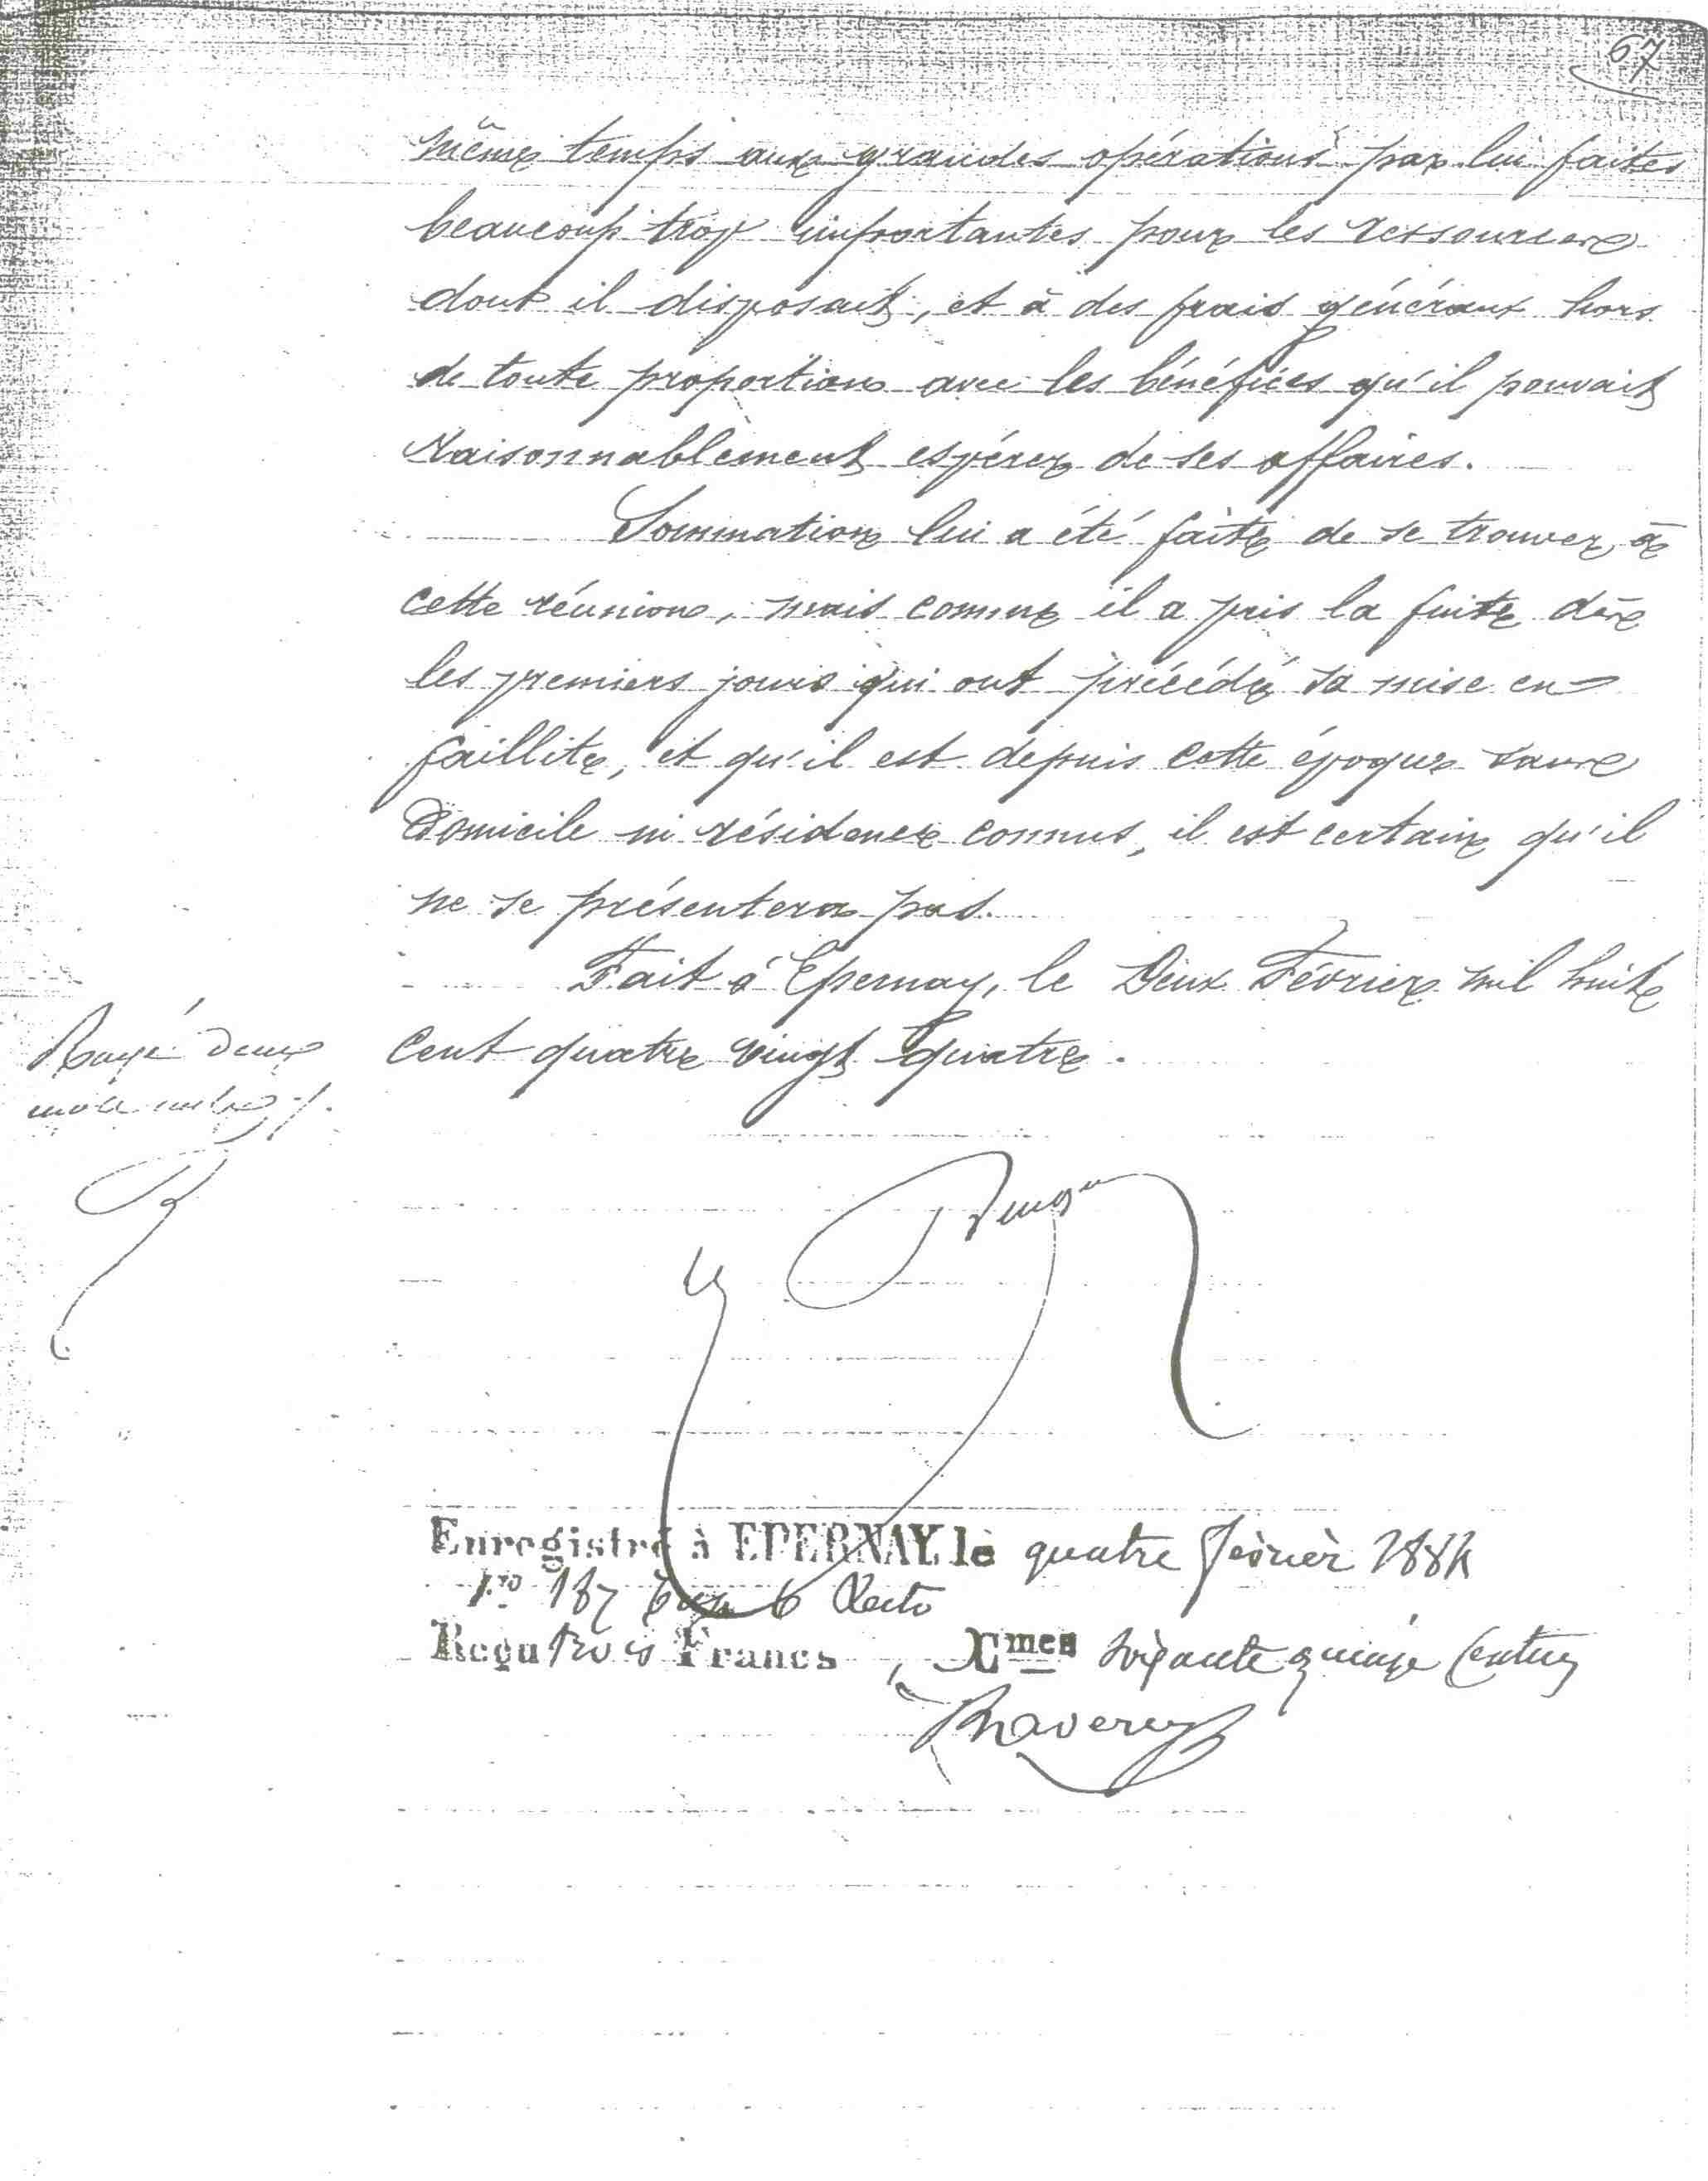 67
même temps aux grandes opérations par lui faites
beaucoup trop importantes pour les ressources
dont il disposait, et à des frais généraux hors
de toute proportion avec les bénéfices qu'il pouvait
raisonnablement espérer de ses affaires.
Sommation lui a été faite de se trouver à
cette réunion, mais comme il a pris la fuite dès
les premiers jours qui ont précédé sa mise en
faillite, et qu'il est depuis cette époque sans
domicile ni résidence connus, il est certain qu'il
ne se présentera pas.
Fait à Epernay, le Deux Février mil huit
cent quatre vingt quatre.
Rayé deux
mots nuls
Enregistré à EPERNAY, le quatre février 1884
No 187 Case 6 Recto
Reçu trois Francs, Xmes soixante quinze Centimes